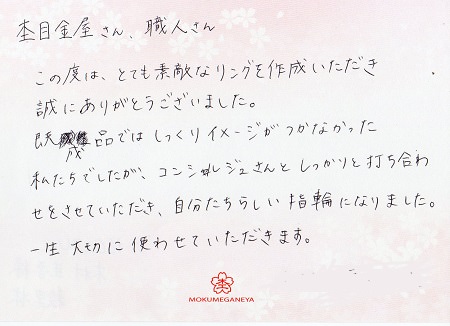 杢目金屋さん、職人さん
この度は、とても素敵なリングを作成いただき
誠にありがとうございました。
既成品ではしっくりイメージがつかなかった
私たちでしたが、コンシェルジュさんとしっかりと打ち合わ
せをさせていただき、自分たちらしい指輪になりました。
一生大切に使わせていただきます。
杢
MOKUMEGANEYA